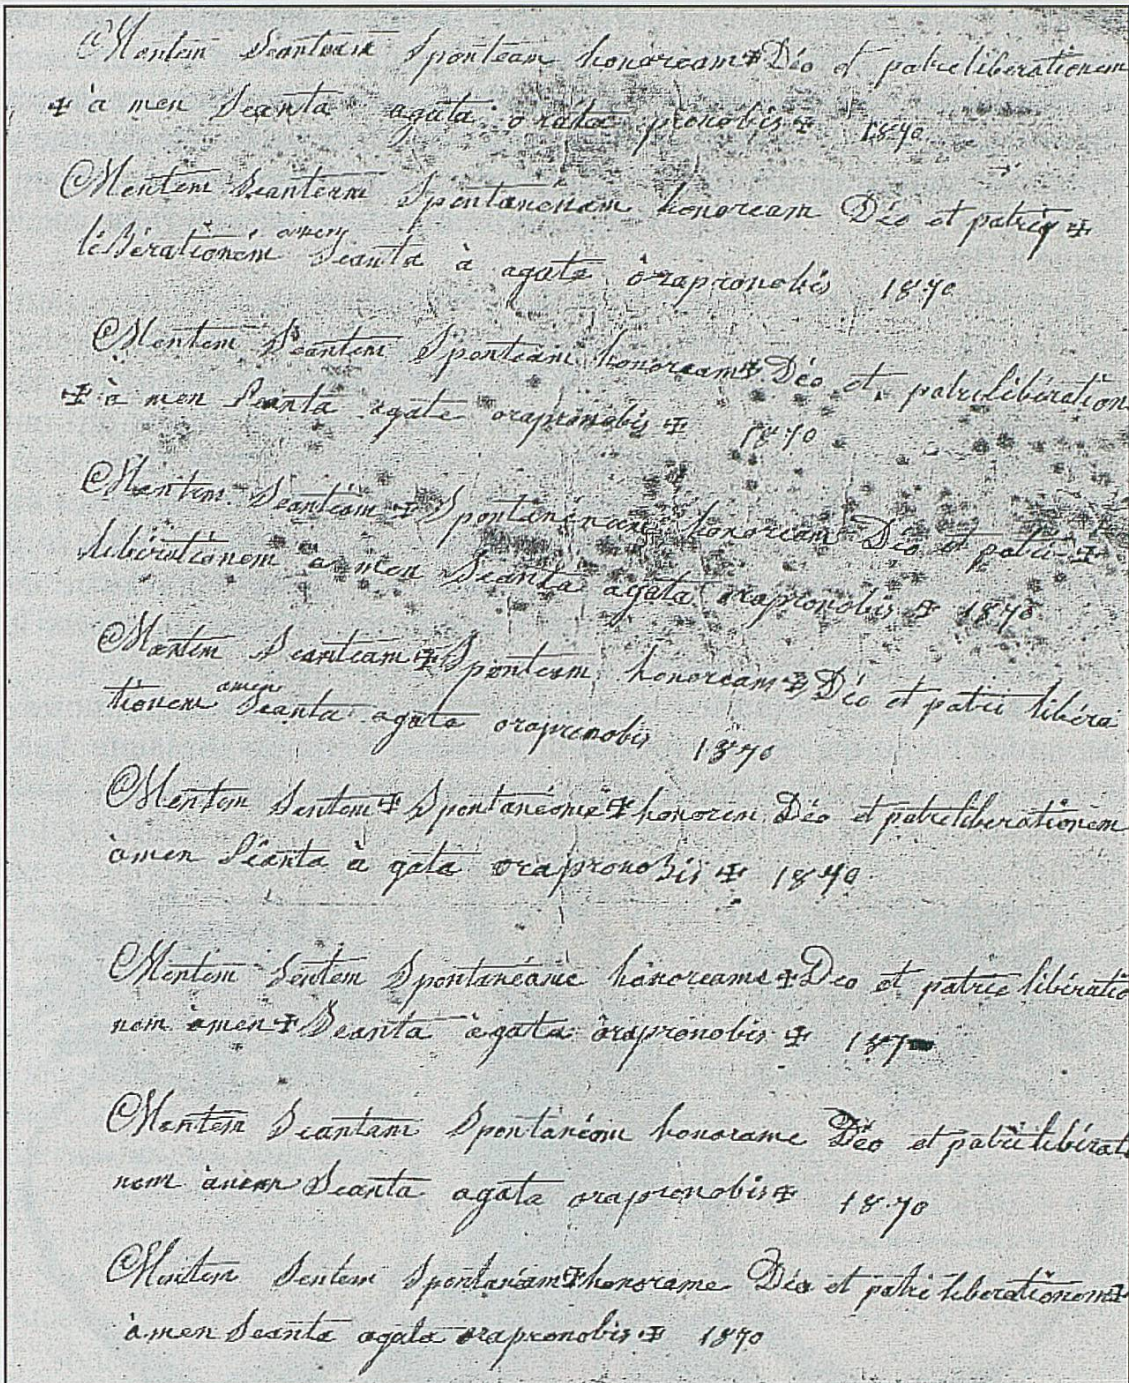 Mentem Scantam Sponteam honoream ✠ Déo et patrie liberationem
✠ à men Scanta agata orata pronobis ✠ 1870
Mentem Scantem Spontanénam honoream Déo et patrię ✠
libérationém amen Scanta à agata òrapronobis 1870
Mentem Scantem Sponteam honoream ✠ Déo et patrielibération
✠ à men Scanta agate orapronobis ✠ 1870
Mentem Scantéam ✠ Spontanénam honoream Déo et patri ✠
libérationem a men Scanta agata orapronobis ✠ 1870
Mentem Scanteam ✠ Sponteam honoream ✠ Déo et patrie libéra
tionem amen Scanta agata orapronobis 1870
Mentem Sentem ✠ Spontanéome ✠ honorem Déo et patrieliberationem
àmen Scanta à gata orapronobis ✠ 1870
Mentem Sentem Spontanéanie honoreame ✠ Deo et patrie libératio
nem àmen ✠ Scanta àgata òrapronobis ✠ 187
Mentem Scantam Spontanéom honorame Déo et patrielibérat
nem àmen Scanta agata orapronobis ✠ 1870
Mentem Sentem Spontanéam ✠ honorame Déo et patrie liberationem ✠
àmen Scanta agata orapronobis ✠ 1870